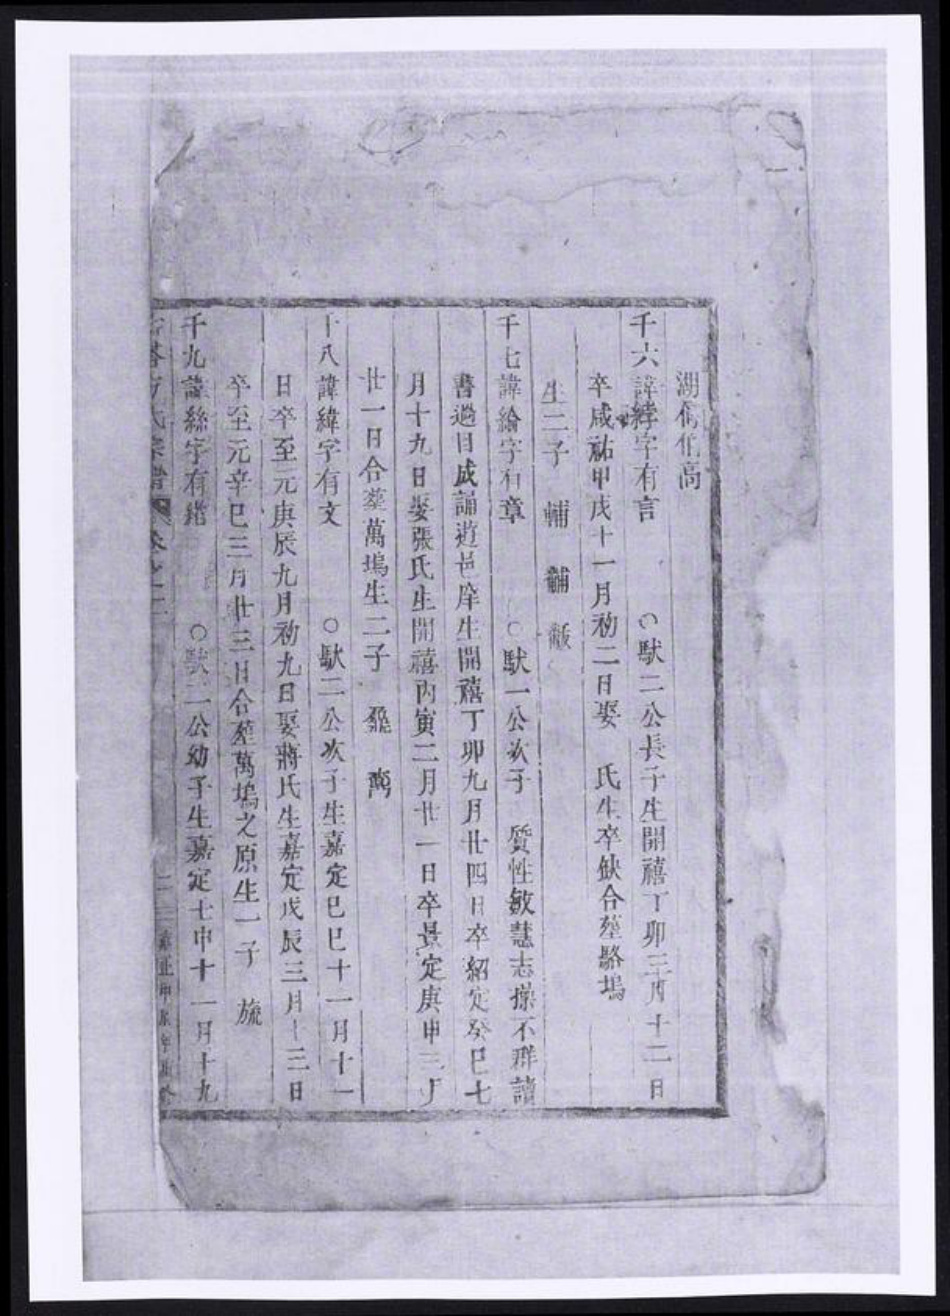 湖儁伲高
千六諱綍字有言 ○馱二公長子生開禧丁卯三月十二日
卒咸祐甲戌十一月初二日娶 氏生卒缺合塟駱塢
生二子 輔 黼
千七諱繪字有章 ○馱一公次子 質性敏慧志操不群讀
書過目成誦遊邑庠生開禧丁卯九月廿四日卒紹定癸巳七
月十九日娶張氏生開禧丙寅二月廿一日卒景定庚申三月
廿一日合塟萬塢生二子
十八諱緯字有文 ○馱二公次子生嘉定巳巳十一月十一
日卒至元庚辰九月初九日娶蔣氏生嘉定戊辰三月十三日
卒至元辛巳三月廿三日合塟萬塢之原生一子 旒
千九諱絲字有緒 ○馱二公幼子生嘉定七申十一月十九
方氏宗譜 卷之二